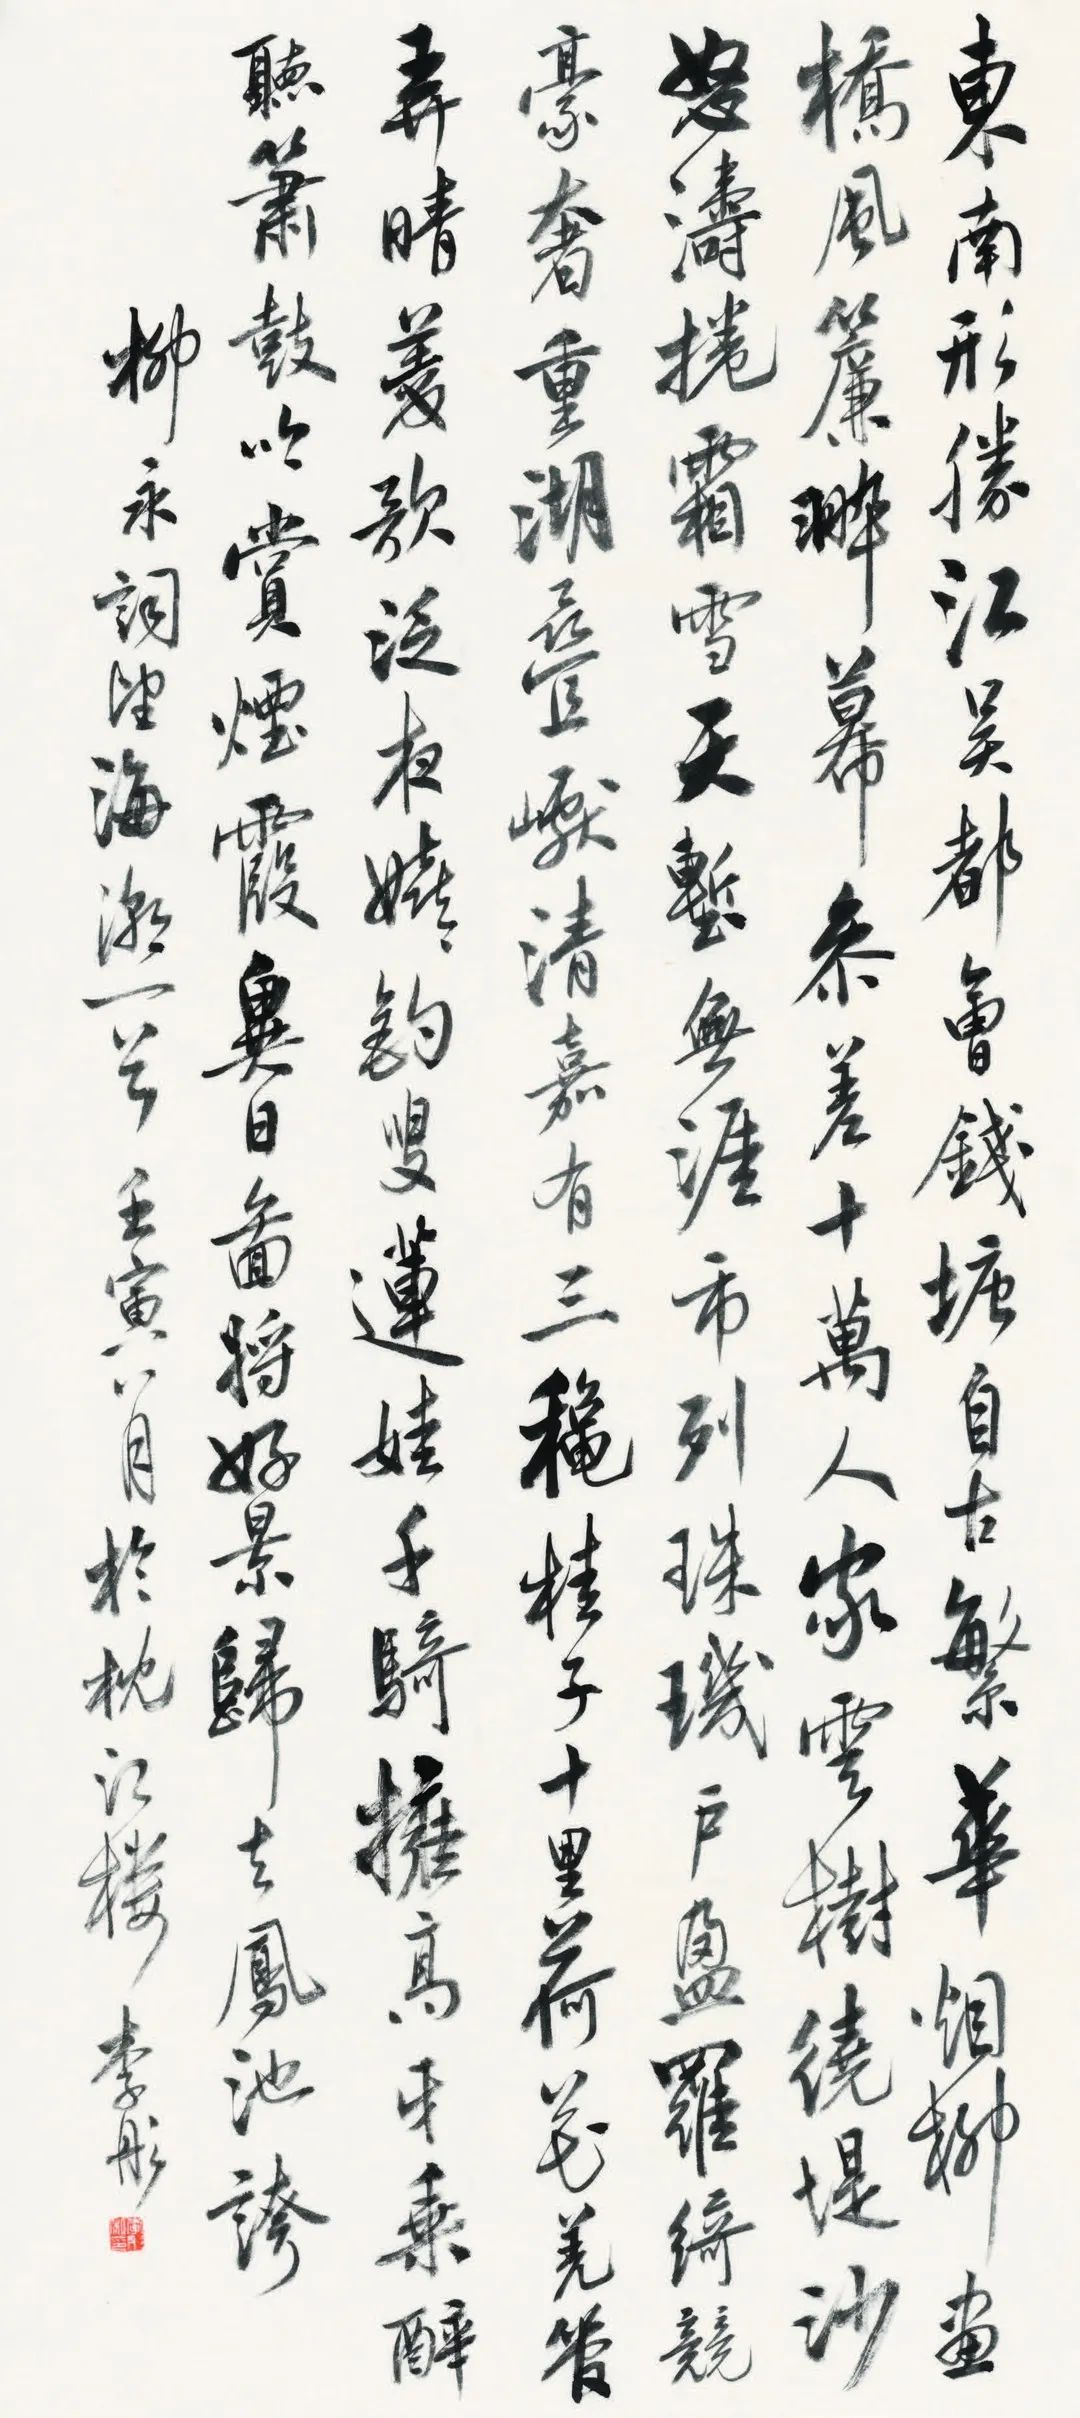 東南形勝江吴都會錢塘自古繁華烟柳畫
橋風簾翠幕参差十萬人家雲樹繞堤沙
怒濤捲霜雪天塹無涯市列珠璣户盈羅綺競
豪奢重湖疊巘清嘉有三穐桂子十里荷花羌管
弄晴菱歌泛夜嬉嬉釣叟蓮娃千騎擁高牙乘醉
聽簫鼓吟賞煙霞異日畵將好景歸去鳳池誇
柳永詞望海潮一首壬寅八月於枕江樓李彤